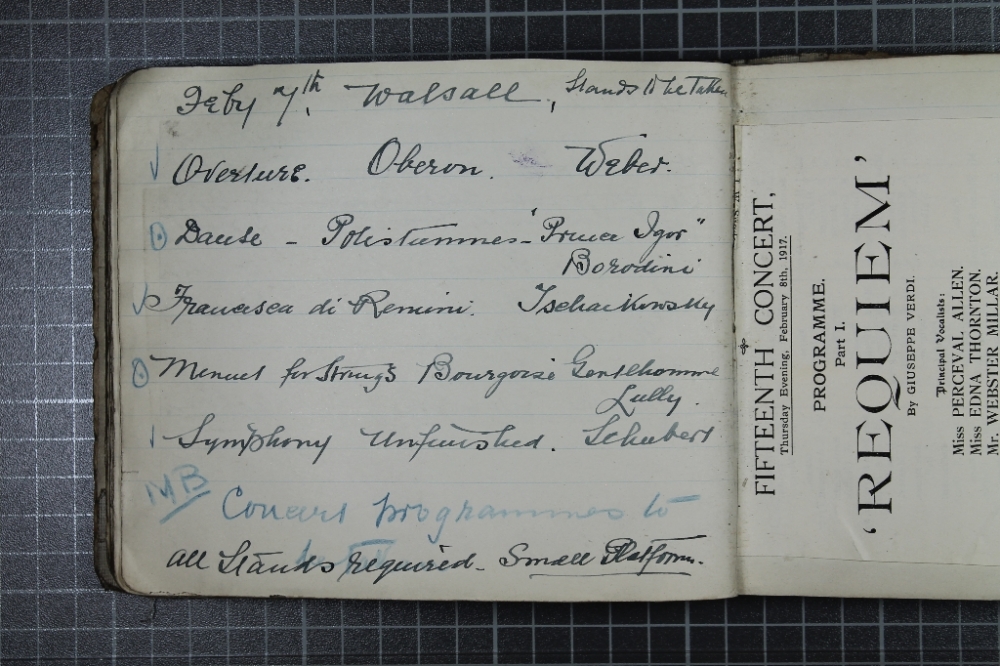 Feby 7th, Walsall, Stands to be Taken
Overture. Oberon. Weber.
Danse - Polistumnes - "Prince Igor"
Borodini
Francesca di Remini. Tschaikowsky
Menuet for Strings Bourgoise Gentlhomme
Lully.
Symphony Unfinished. Schubert
NB
Concert programmes to
all Stands required - Small Platform.
FIFTEENTH CONCERT,
Thursday Evening, February 8th, 1917.
PROGRAMME.
Part I.
'REQUIEM'
By GIUSEPPE VERDI.
Principal Vocalists:
Miss PERCEVAL ALLEN.
Miss EDNA THORNTON.
Mr. WEBSTER MILLAR.